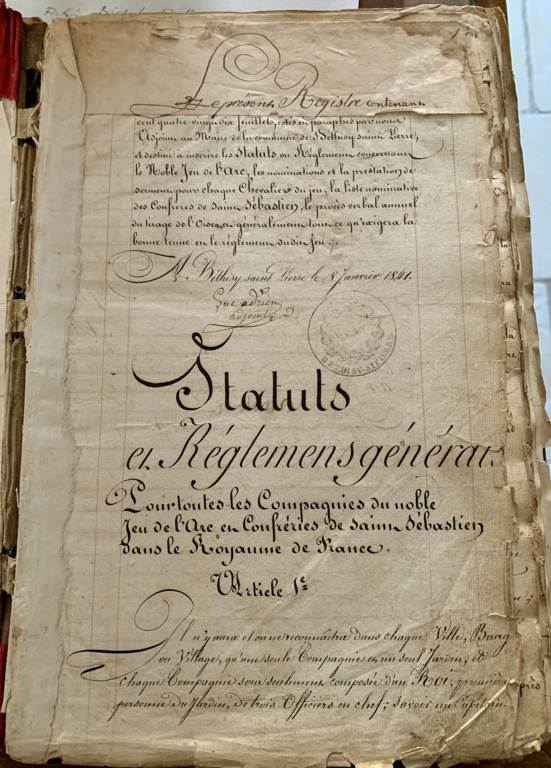 Le présent Registre contenant
cent quatre-vingt dix feuillets, cotés en paraphés par nous
Adjoint au Maire de la commune de Béthisy saint Pierre,
est destiné à inscrire les Statuts ou Réglemens concernant
le Noble Jeu de l'Arc, les nominations et la prestation de
serment pour chaque Chevalier du jeu, la liste nominative
des Confrères de Saint Sébastien, le procès verbal annuel
du tirage de l'Oiseau, en généralement tout ce qu'exigera la
bonne tenue en le règlement dudit Jeu.
A Béthisy saint Pierre le 8 Janvier 1841.
adrien
adjoint
Statuts
et Réglemens généraux
Pour toutes les Compagnies du noble
Jeu de l'Arc en Confréries de Saint Sébastien
dans le Royaume de France.
Article 1er
Il n'y aura et on ne reconnaîtra dans chaque Ville, Bourg
ou Village, qu'une seule Compagnie en un seul Jardin; et
chaque Compagnie sera seulement composée d'un Roi, première
personne du Jardin, de trois Officiers en chef; savoir un Capitaine